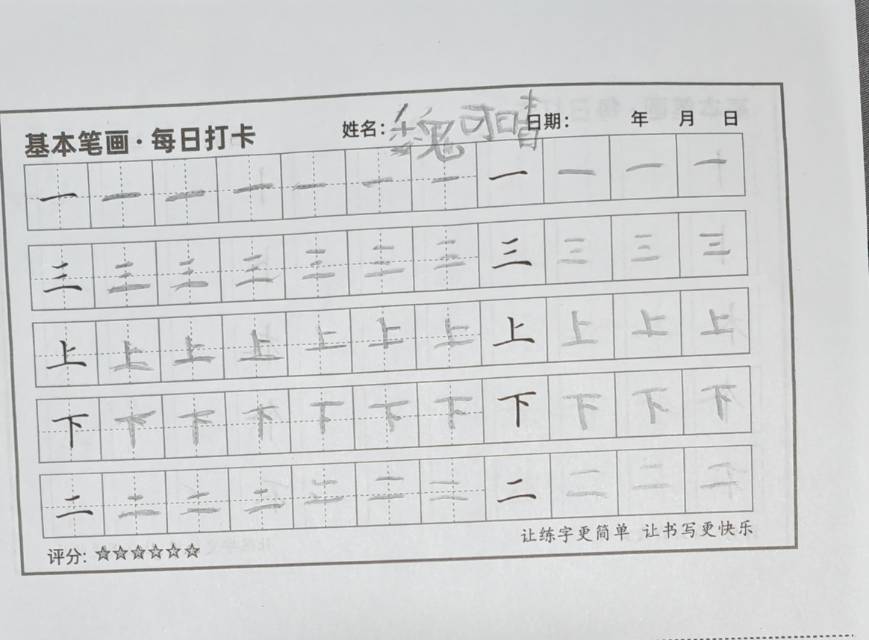 基本笔画·每日打卡 姓名：魏可晴 日期： 年 月 日
一 一 一 一 一 一 一 一 一 一 一
三 三 三 三 三 三 三 三 三 三 三
上 上 上 上 上 上 上 上 上 上 上
下 下 下 下 下 下 下 下 下 下 下
二 二 二 二 二 二 二 二 二 二 二
评分: ☆☆☆☆☆☆ 让练字更简单 让书写更快乐